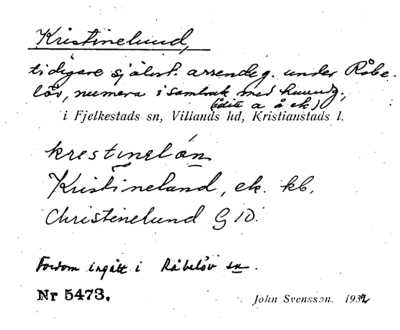 Kristinelund,
tidigare självst. arrendeg. under Råbe-
löv, numera i sambruk med huvudg.,
(dito a å ek)
i Fjelkestads sn, Villands hd, Kristianstads l.
krestinelón
Kristinelund, ek. kb.
Christinelund G 10.
Fordom ingått i Råbelöv sn.
Nr 5473.
John Svensson. 1932